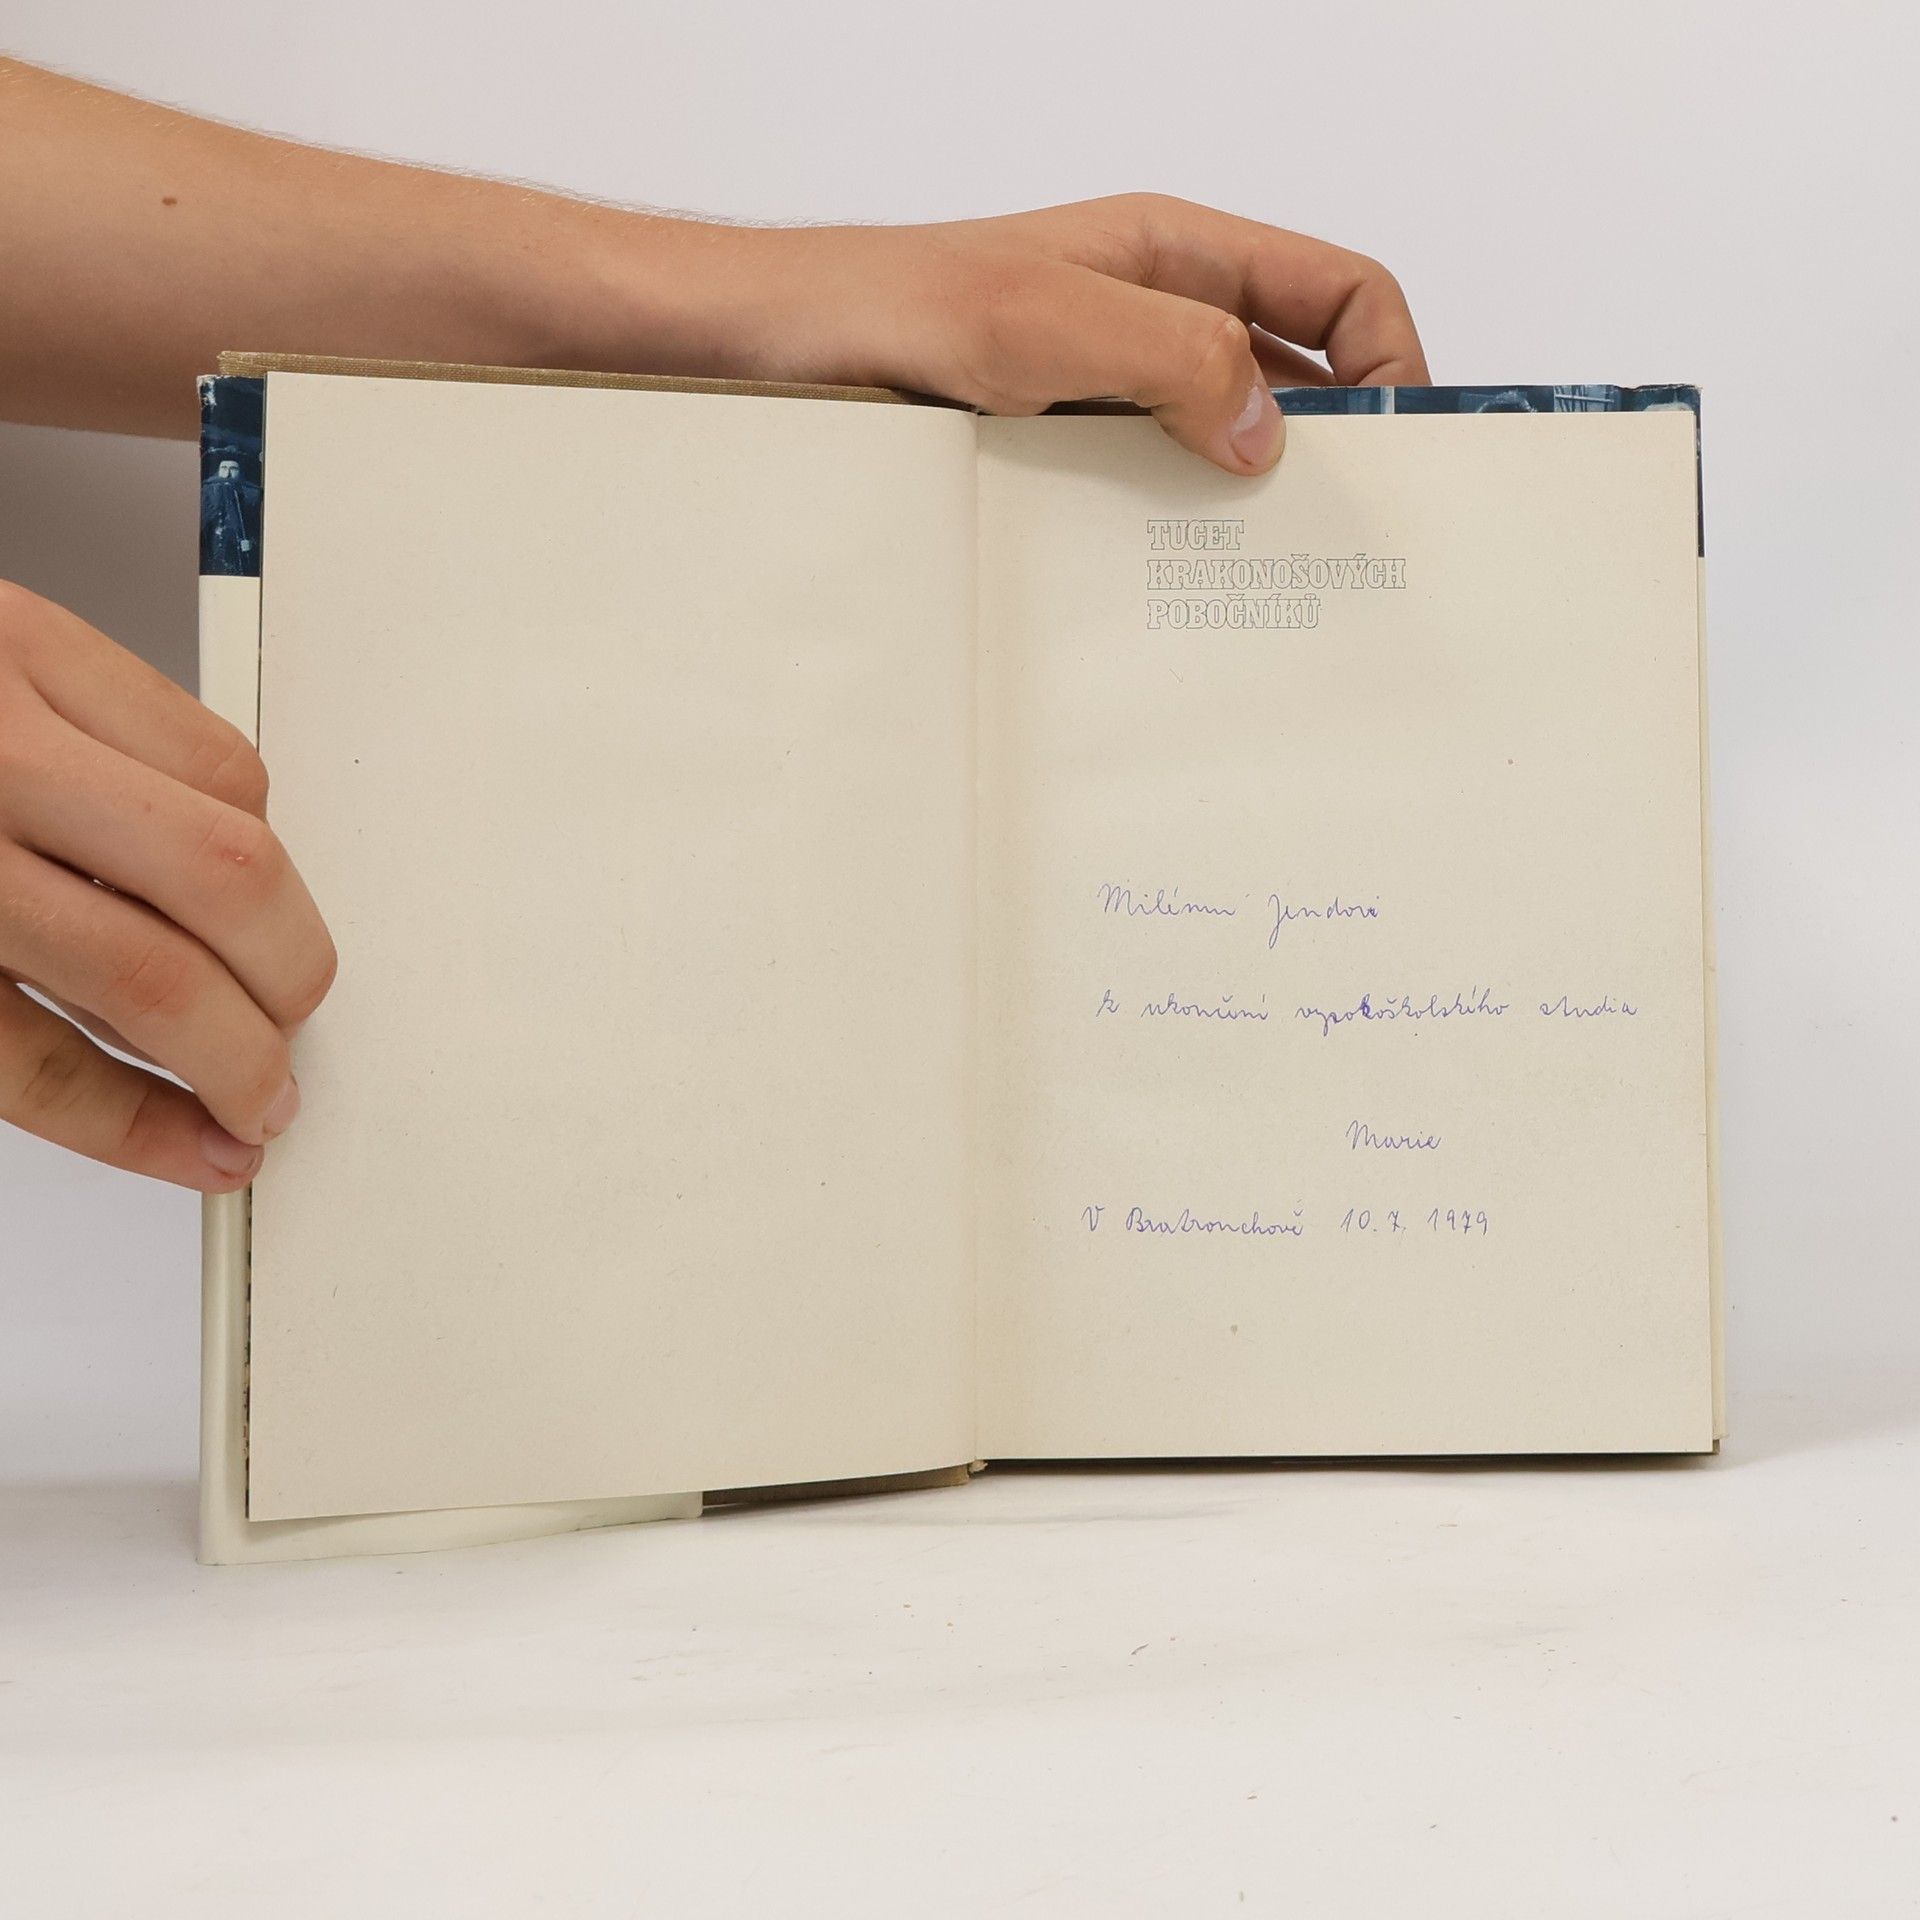 TUCET
KRAKONOŠOVÝCH
POBOČNÍKŮ
Milému Jendovi
k ukončení vysokoškolského studia
Marie
V Bratrouchově 10. 7. 1979